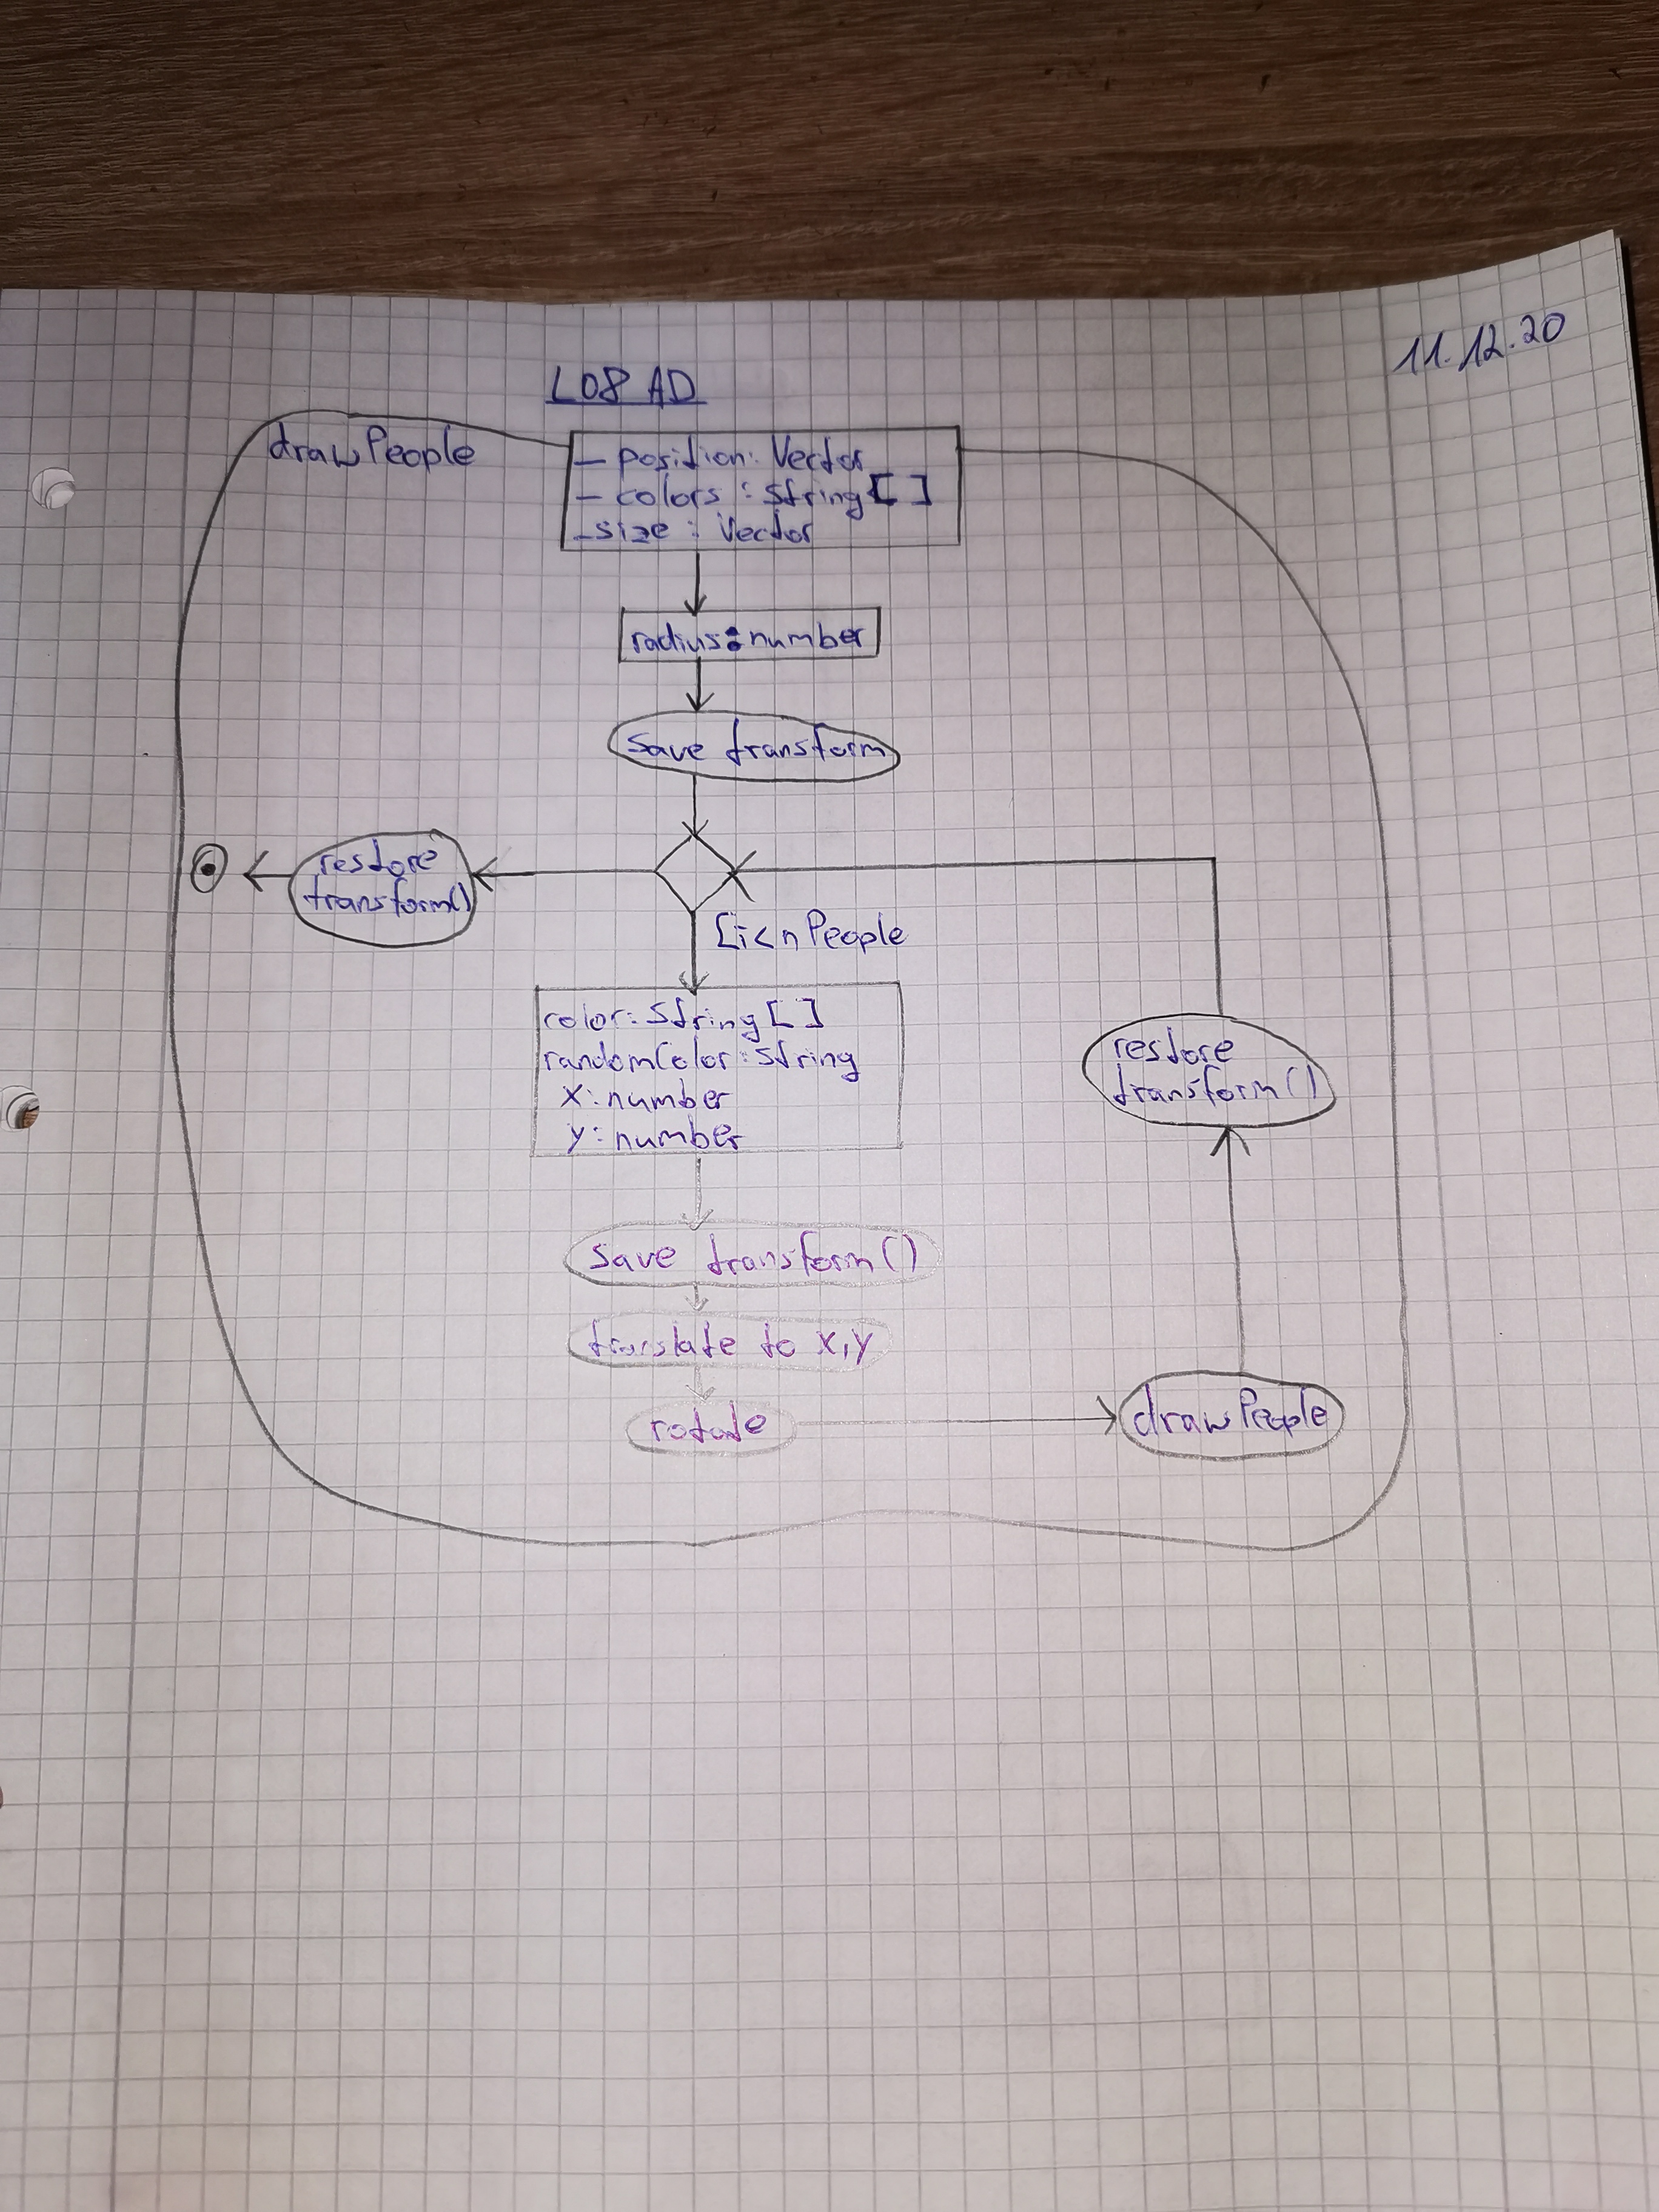 11.12.20
L08 AD
drawPeople
- position: Vector
- colors : String [ ]
- size : Vector
radius: number
Save transform
restore
transform()
[i<nPeople
color: String [ ]
randomColor: String
x: number
y: number
restore
transform()
Save transform()
translate to x,y
rotate
drawPeople